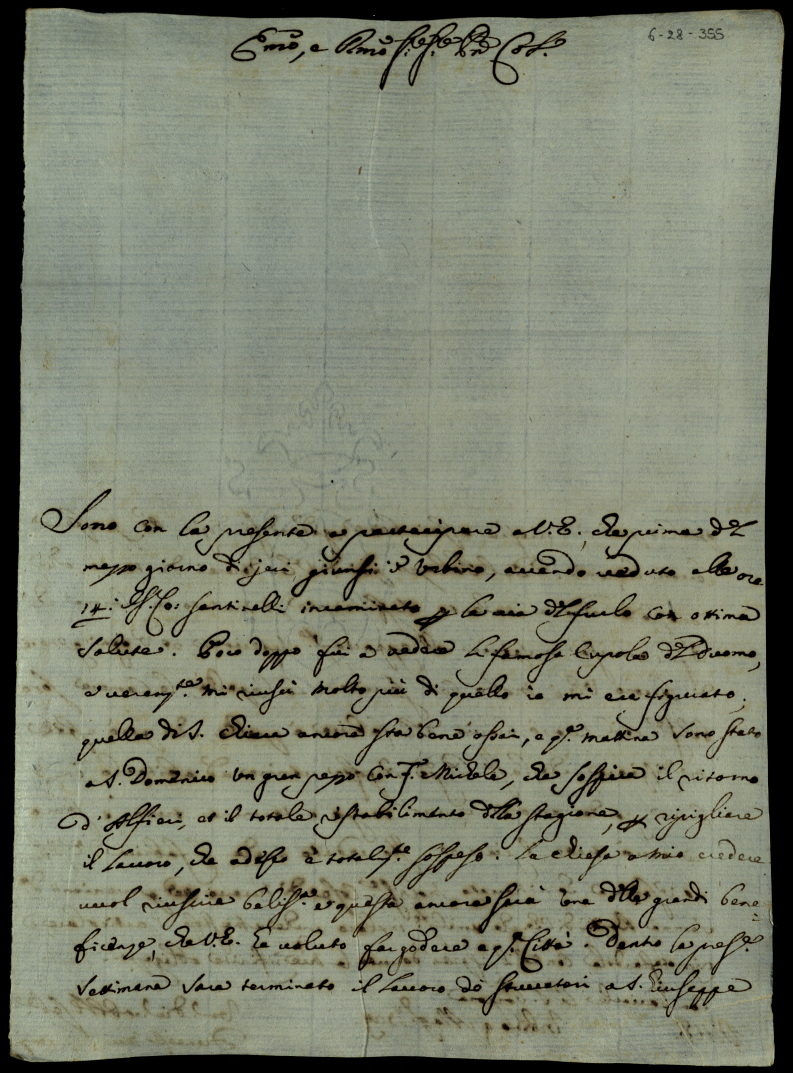 6-28-355
Emo, e Rmo Sig.e Sig.e Pñe Col.o
Sono con la presente a partecipare a V. E., che prima del
mezzo giorno di jeri giunsi in Urbino, avendo veduto alle ore
14: il S. Co: Santinelli incaminato p la via del furlo con ottima
salute. Poco doppo fui a vedere la famosa Cupola del Duomo,
e veram.te mi riuscì molto più di quello io mi era figurato;
quella di S. Chiara ancora sta bene assai, e q.a mattina sono stato
a S. Domenico un gran pezzo con F. Michele, che sospira il ritorno
d'Alfieri, et il totale ristabilimento della stagione, p ripigliare
il lavoro, che adesso è totalm.te sospeso. La chiesa a mio credere
vuol riuscire belliss.a e questa ancora sarà una delle grandi bene=
ficenze, che V. E. ha voluto far godere a q.a Città. Dentro la pres.e
settimana sarà terminato il lavoro de stuccatori a S. Giuseppe